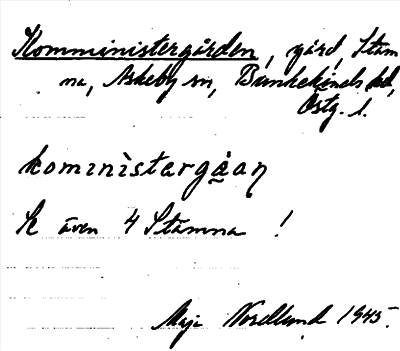 Komministergården, gård, Stäm
na, Askeby sn, Bankekinds hd,
Östg. l.
kominìstargå̱aṇ
Se även 4 Stämna !
Maj Nordlund 1945.